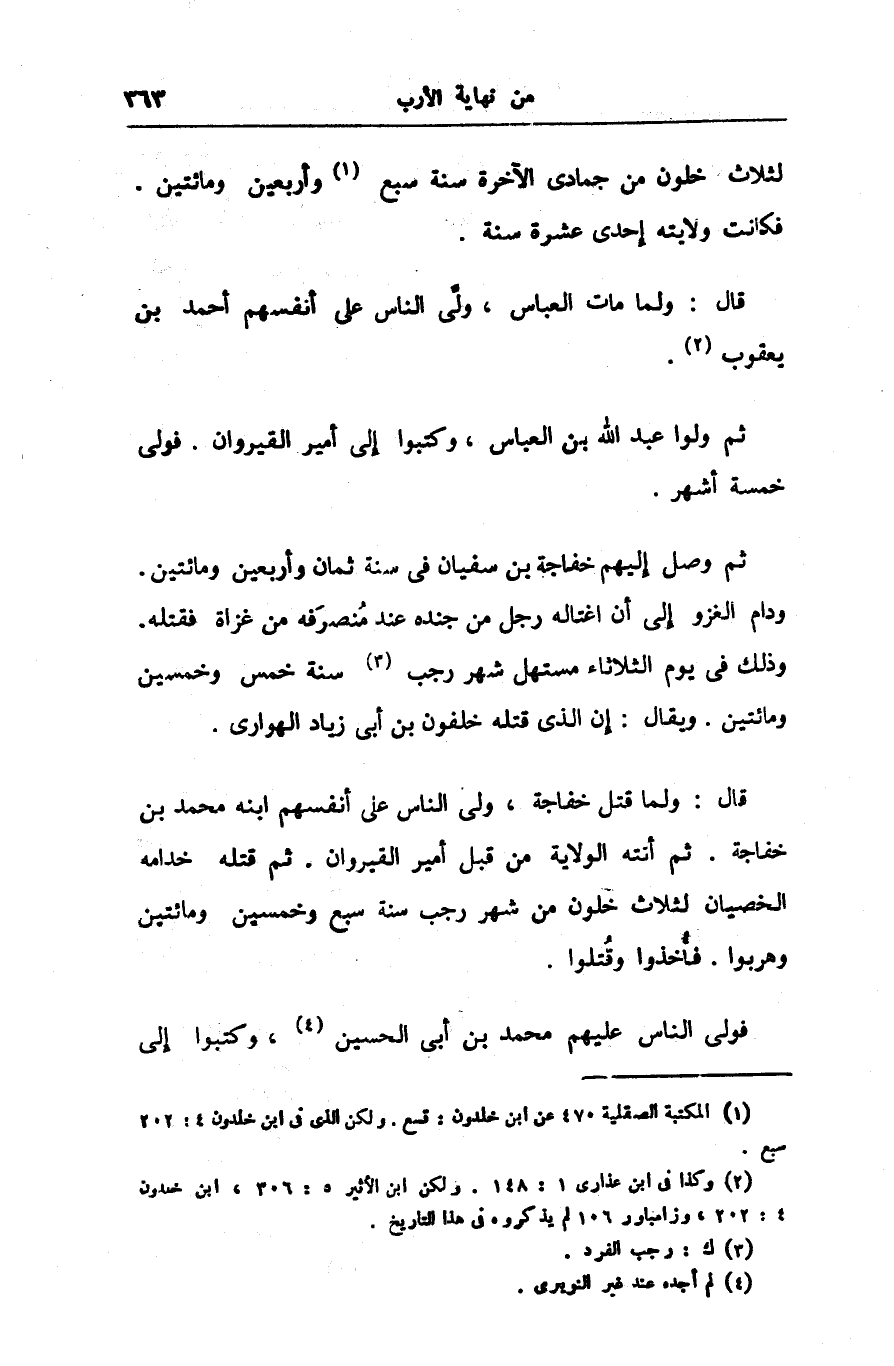 من نهاية الأرب ٣٦٣
لثلاث خلون من جمادى الآخرة سنة سبع (١) وأربعين ومائتين .
فكانت ولايته إحدى عشرة سنة .
قال : ولما مات العباس ، ولَّى الناس على أنفسهم أحمد بن
يعقوب (٢) .
ثم ولوا عبد الله بن العباس ، وكتبوا إلى أمير القيروان . فولى
خمسة أشهر .
ثم وصل إليهم خفاجة بن سفيان فى سنة ثمان وأربعين ومائتين .
ودام الغزو إلى أن اغتاله رجل من جنده عند مُنصرَفه من غزاة فقتله .
وذلك فى يوم الثلاثاء مستهل شهر رجب (٣) سنة خمس وخمسين
ومائتين . ويقال : إن الذى قتله خلفون بن أبى زياد الهوارى .
قال : ولما قتل خفاجة ، ولى الناس على أنفسهم ابنه محمد بن
خفاجة . ثم أتته الولاية من قبل أمير القيروان . ثم قتله خدامه
الخصيان لثلاث خلون من شهر رجب سنة سبع وخمسين ومائتين
وهربوا . فأُخذوا وقُتلوا .
فولى الناس عليهم محمد بن أبى الحسين (٤) ، وكتبوا إلى
(١) المكتبة الصقلية ٤٧٠ عن ابن خلدون : تسع . ولكن الذى فى ابن خلدون ٤ : ٢٠٢
سبع .
(٢) وكذا فى ابن عذارى ١ : ١٤٨ . ولكن ابن الأثير ٥ : ٣٠٦ ، ابن خلدون
٤ : ٢٠٢ ، وزامباور ١٠٦ لم يذكروه فى هذا التاريخ .
(٣) ك : رجب الفرد .
(٤) لم أجده عند غير النويرى .